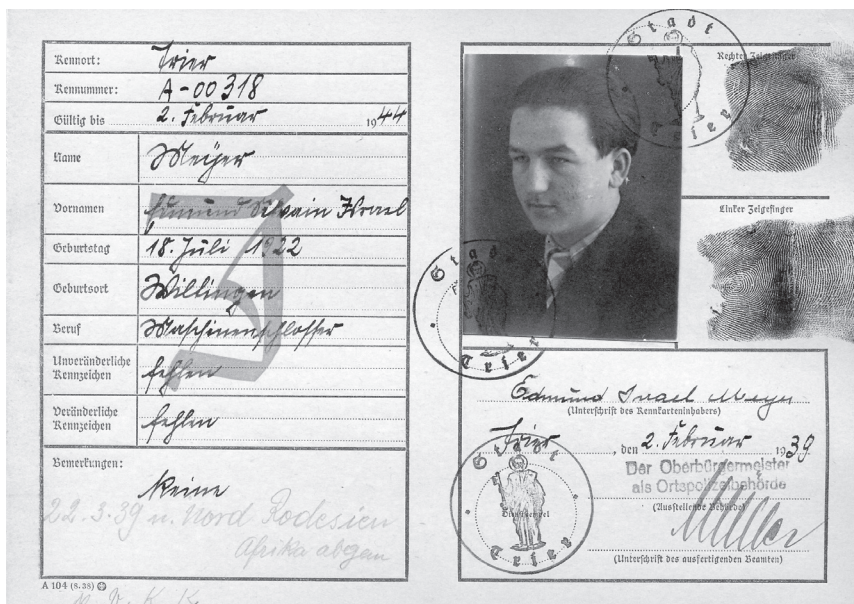 Kennort: Trier
Kennummer: A-00318
Gültig bis 2. Februar 1944
Name Meyer
Vornamen Edmund Silvain Israel
Geburtstag 18. Juli 1922
Geburtsort Willingen
Beruf Maschinenschlosser
Unveränderliche Kennzeichen fehlen
Veränderliche Kennzeichen fehlen
Bemerkungen:
Keine
22.3.39 n. Nord Rodesien
Afrika
A 104 (8. 38)
J
Stadt Trier
Rechter Zeigefinger
Linker Zeigefinger
Stadt Trier
Edmund Israel Meyer
(Unterschrift des Kennkarteninhabers)
Trier, den 2. Februar 1939
Der Oberbürgermeister
als Ortspolizeibehörde
(Ausstellende Behörde)
Stadt Trier
Dienststempel
(Unterschrift des ausfertigenden Beamten)